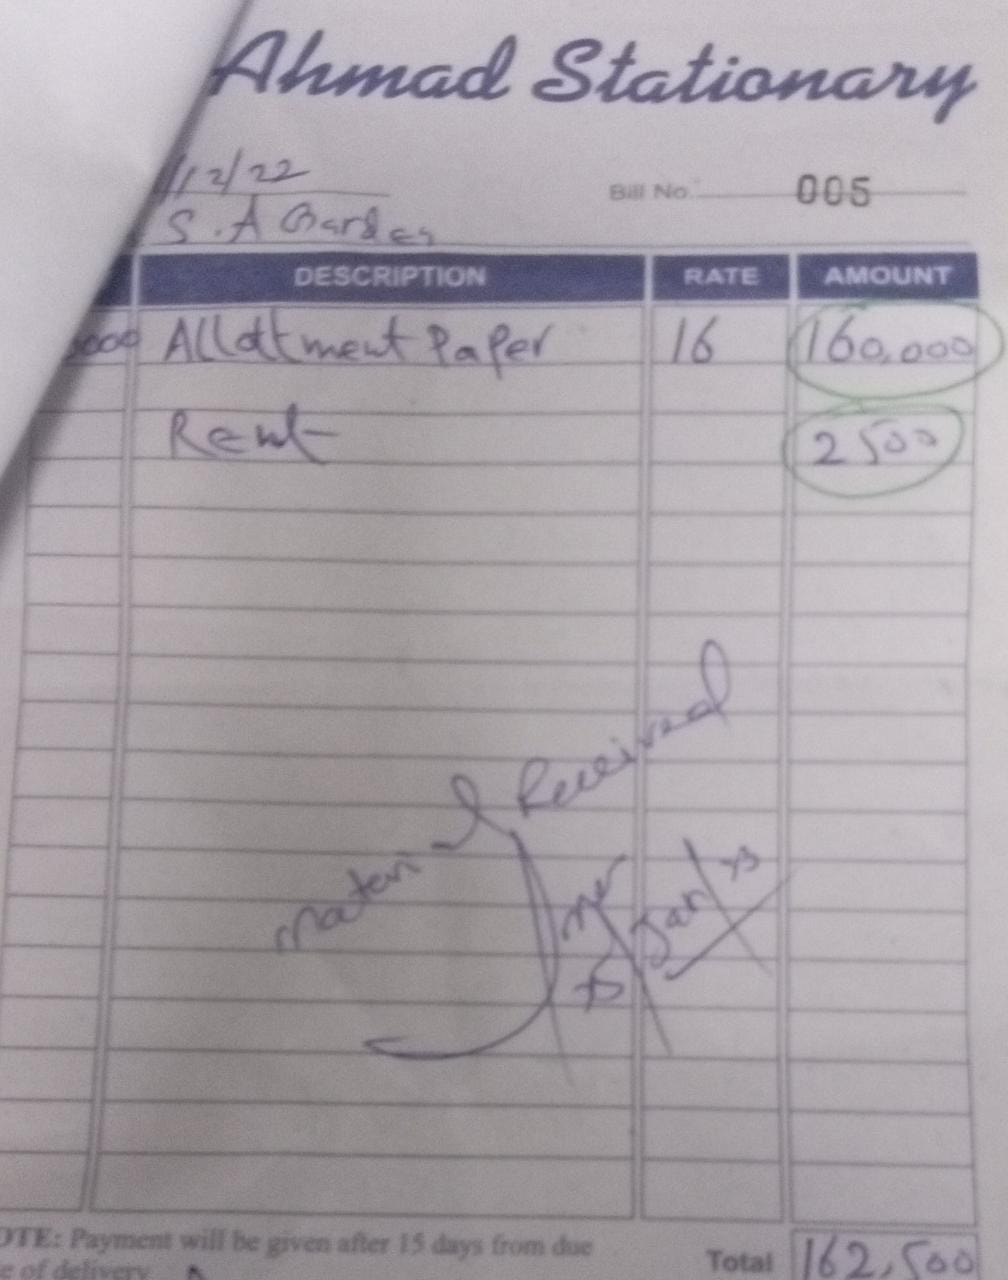 Ahmad Stationary
/12/22
Bill No. 005
S.A Garden
DESCRIPTION RATE AMOUNT
000 Allotment Paper 16 160,000
Rent 2500
Material Received
Jan
OTE: Payment will be given after 15 days from due
e of delivery
Total 162,500